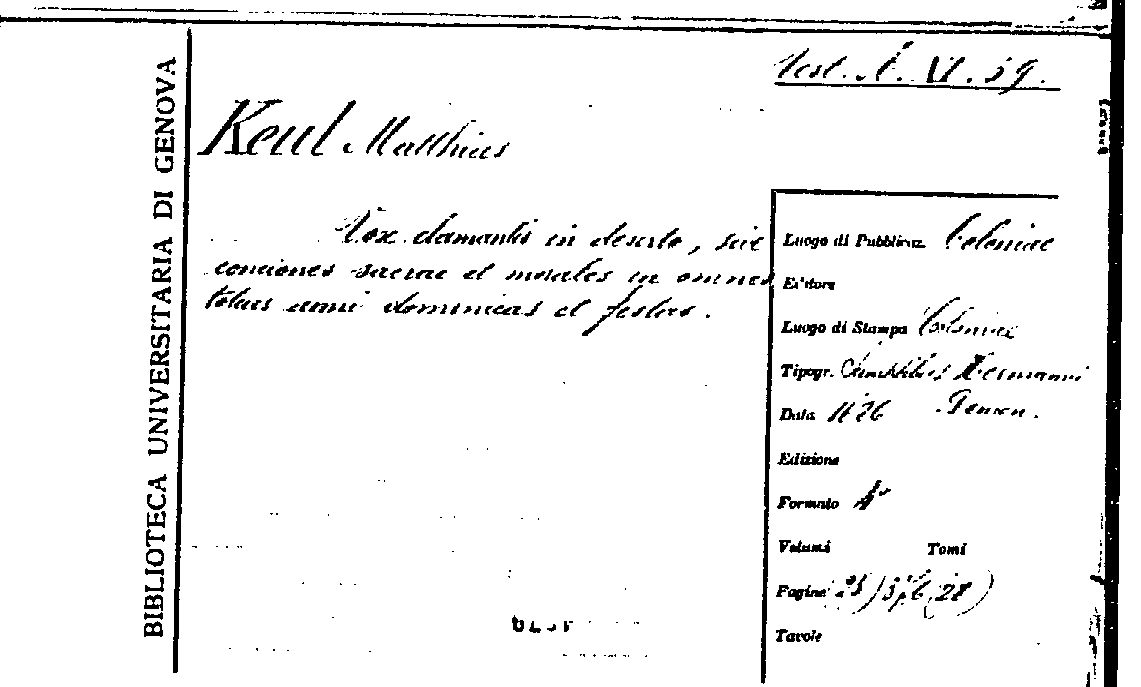 BIBLIOTECA UNIVERSITARIA DI GENOVA
Test. A. VI. 59.
Keul Matthias
Vox clamantis in deserto, sive
conciones sacrae et morales in omnes
totius anni dominicas et festas.
Luogo di Pubblicaz. Coloniae
Editore
Luogo di Stampa Coloniae
Tipogr. Hermanni
Data Demen.
Edizione
Formato 4°
Volumi Tomi
Pagine (28)
Tavole